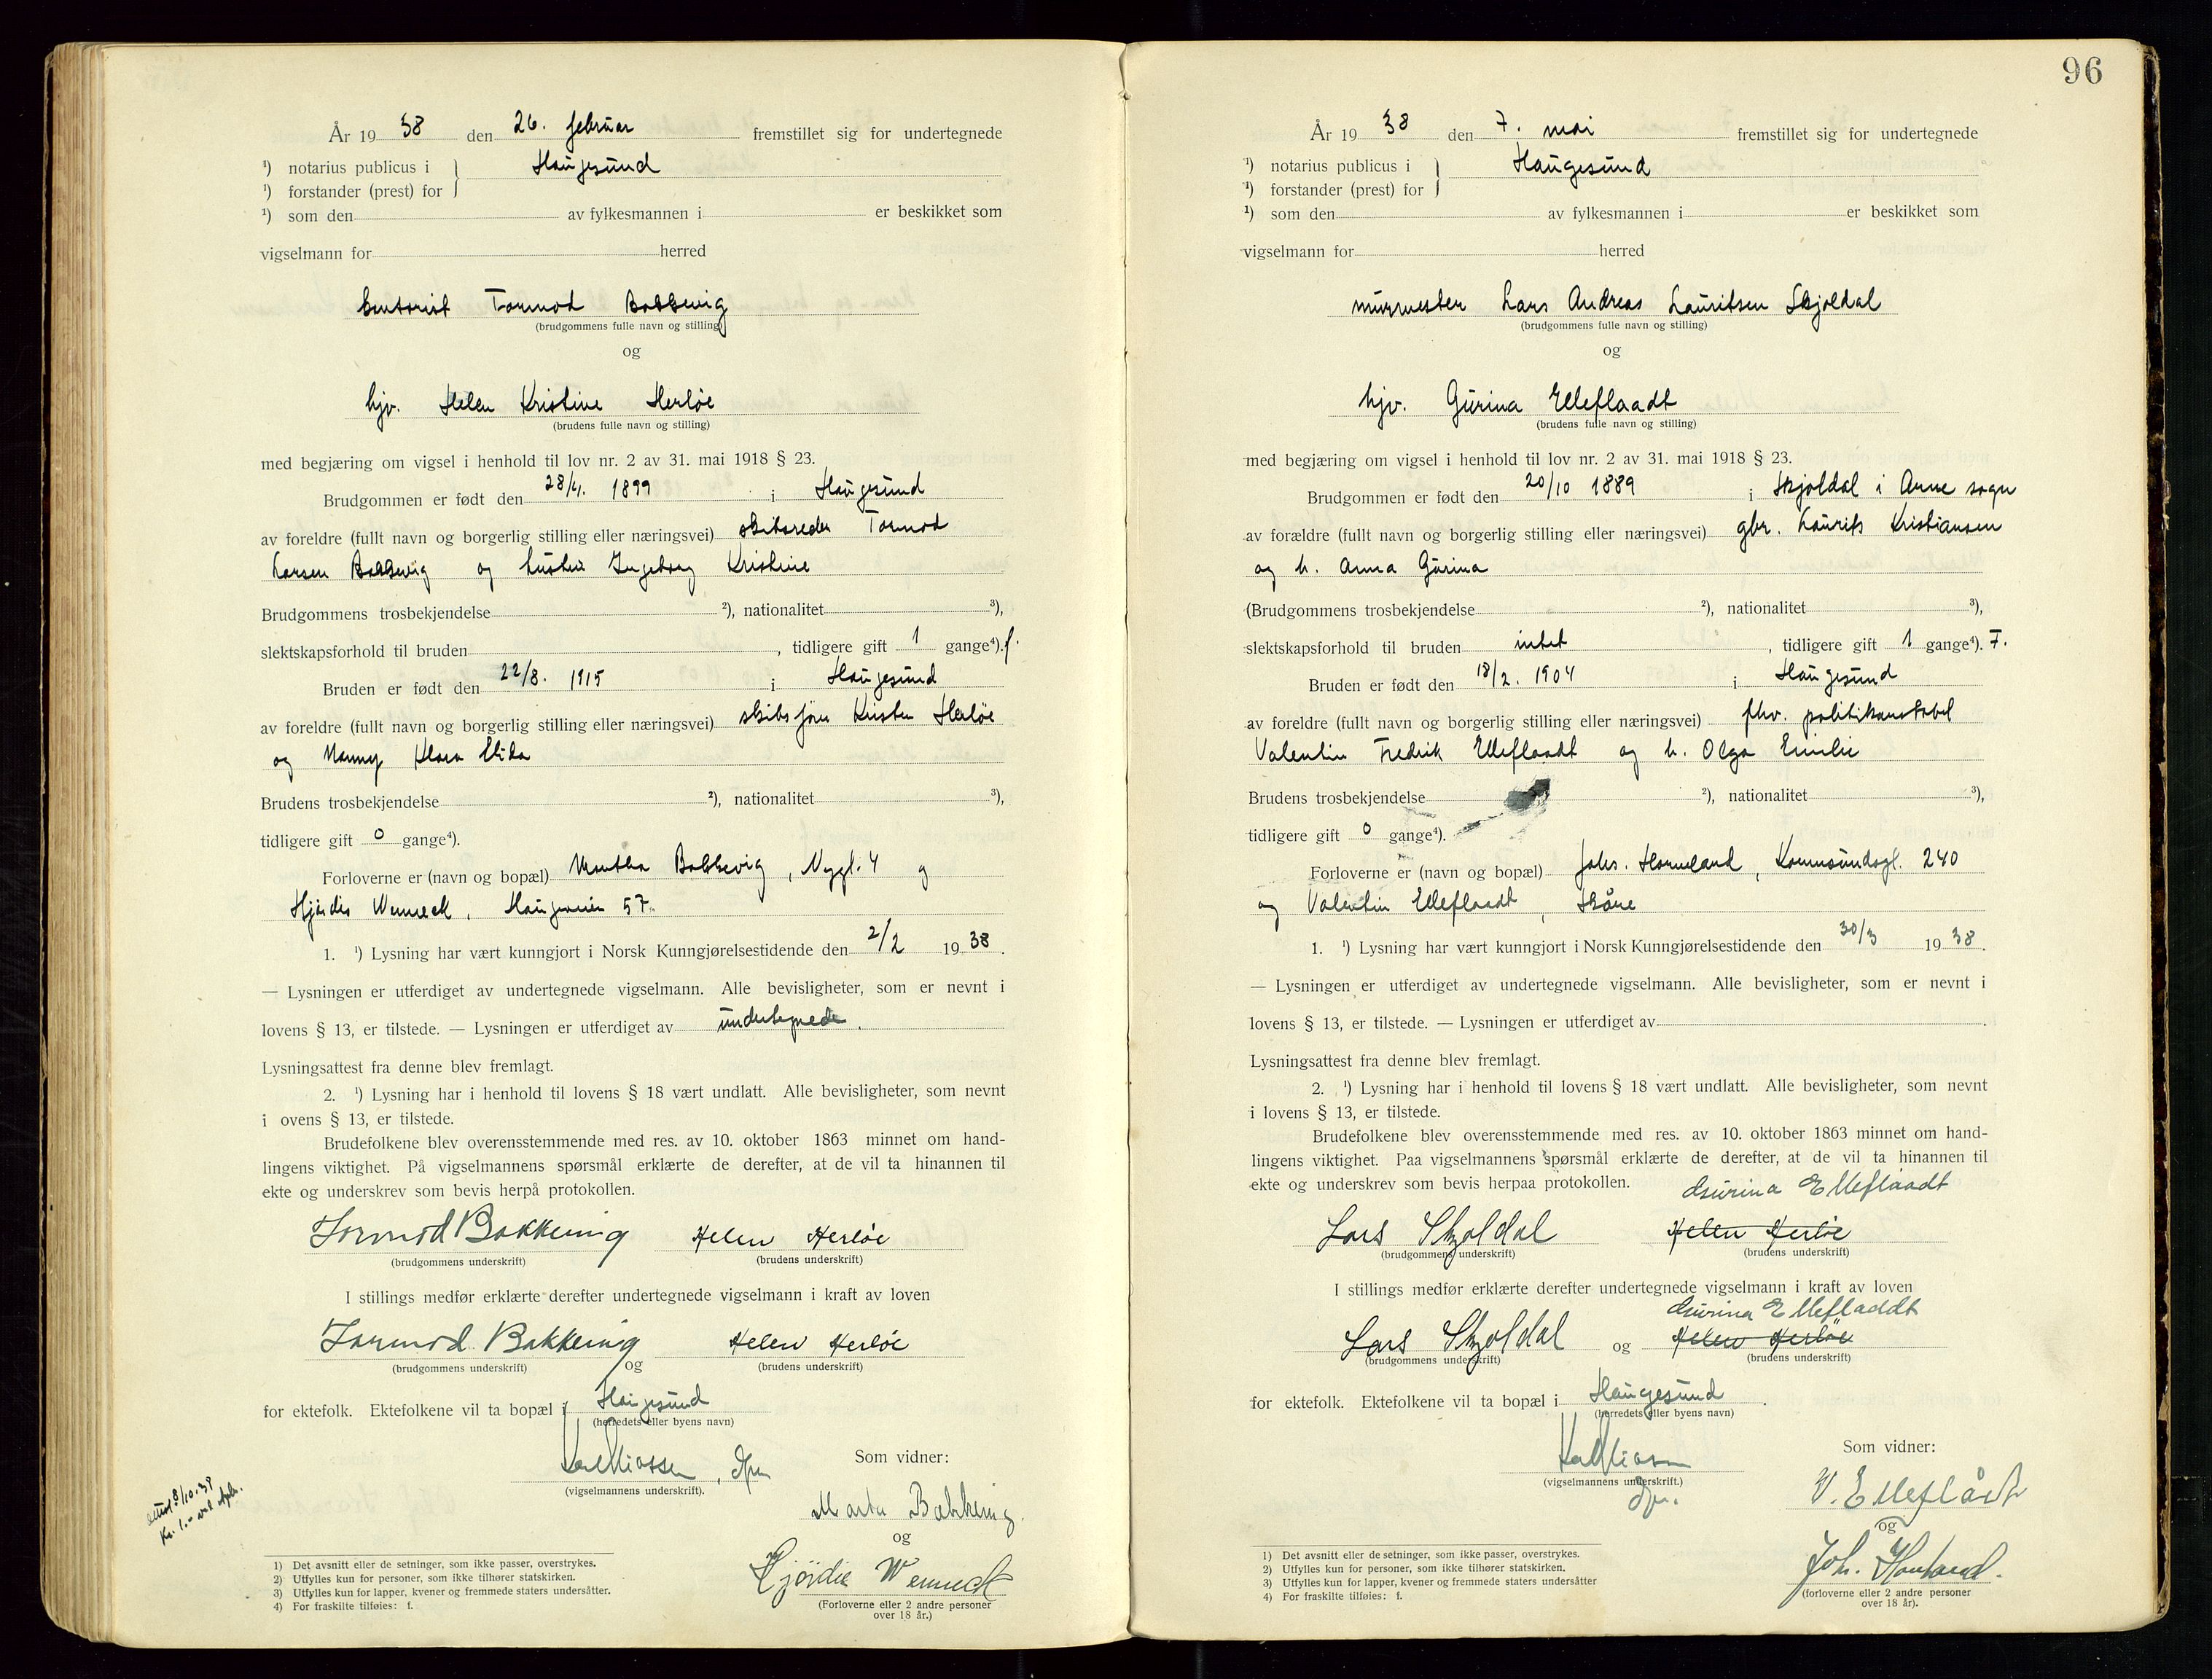 År 19 38 den 26. februar fremstillet sig for undertegnede
¹) notarius publicus i } Haugesund
¹) forstander (prest) for
¹) som den av fylkesmannen i er beskikket som
vigselmann for herred
kontorist Tormod Bakkevig
(brudgommens fulle navn og stilling)
og
hjv. Helen Kristine Herløe
(brudens fulle navn og stilling)
med begjæring om vigsel i henhold til lov nr. 2 av 31. mai 1918 § 23.
Brudgommen er født den 28/4. 1899 i Haugesund
av foreldre (fullt navn og borgerlig stilling eller næringsvei) skibsreder Tormod
Larsen Bakkevig og hustru Ingeborg Kristine
Brudgommens trosbekjendelse ²), nationalitet ³),
slektskapsforhold til bruden , tidligere gift 1 gange⁴). f.
Bruden er født den 22/8. 1915 i Haugesund
av foreldre (fullt navn og borgerlig stilling eller næringsvei) skibsfører Kristen Herløe
og Nanny Klara
Brudens trosbekjendelse ²), nationalitet ³),
tidligere gift 0 gange⁴).
Forloverne er (navn og bopæl) Martha Bakkevig, Nygt. 4 og
Hjördis Wenneck, Haugeveien 57.
1. ¹) Lysning har vært kunngjort i Norsk Kunngjørelsestidende den 2/2 19 38.
— Lysningen er utferdiget av undertegnede vigselmann. Alle bevisligheter, som er nevnt i
lovens § 13, er tilstede. — Lysningen er utferdiget av undertegnede.
Lysningsattest fra denne blev fremlagt.
2. ¹) Lysning har i henhold til lovens § 18 vært undlatt. Alle bevisligheter, som nevnt
i ovens § 13, er tilstede.
Brudefolkene blev overensstemmende med res. av 10. oktober 1863 minnet om hand-
lingens viktighet. På vigselmannens spørsmål erklærte de derefter, at de vil ta hinannen til
ekte og underskrev som bevis herpå protokollen.
Tormod Bakkevig Helen Herløe
(brudgommens underskrift) (brudens underskrift)
I stillings medfør erklærte derefter undertegnede vigselmann i kraft av loven
Tormod Bakkevig Helen Herløe
(brudgommens underskrift) og (brudens underskrift)
for ektefolk. Ektefolkene vil ta bopæl i Haugesund
(herredets eller byens navn)
(vigselmannens underskrift).
Som vidner:
Marta Bakkevig.
og
Hjördis Wenneck
(Forloverne eller 2 andre personer
over 18 år.)
8/10.38
Kr. 1.-
1) Det avsnitt eller de setninger, som ikke passer, overstrykes.
2) Utfylles kun for personer, som ikke tilhører statskirken.
3) Utfylles kun for lapper, kvener og fremmede staters undersåtter.
4) For fraskilte tilføies: f.
96
År 19 38 den 7. mai fremstillet sig for undertegnede
¹) notarius publicus i } Haugesund
¹) forstander (prest) for
¹) som den av fylkesmannen i er beskikket som
vigselmann for herred
murmester Lars Andreas Lauritsen Skjoldal
(brudgommens fulle navn og stilling)
og
hjv. Gurina Elleflaadt
(brudens fulle navn og stilling)
med begjæring om vigsel i henhold til lov nr. 2 av 31. mai 1918 § 23.
Brudgommen er født den 20/10 1889 i Skjoldal i Arne sogn
av forældre (fullt navn og borgerlig stilling eller næringsvei) gbr. Laurits Kristiansen
og h. Anna Gurina
(Brudgommens trosbekjendelse ²), nationalitet ³),
slektskapsforhold til bruden intet , tidligere gift 1 gange⁴). F.
Bruden er født den 18/2. 1904 i Haugesund
av foreldre (fullt navn og borgerlig stilling eller næringsvei) fhv. politikonstabel
Valentin Fredrik Elleflaadt og h. Olga Emilie
Brudens trosbekjendelse ²), nationalitet ³),
tidligere gift 0 gange⁴).
Forloverne er (navn og bopæl) Johs. Havneland, Karmsundsgt. 240
og Valentin Elleflaadt, Skåre
1. ¹) Lysning har vært kunngjort i Norsk Kunngjørelsestidende den 30/3 19 38.
— Lysningen er utferdiget av undertegnede vigselmann. Alle bevisligheter, som er nevnt i
lovens § 13, er tilstede. — Lysningen er utferdiget av .
Lysningsattest fra denne blev fremlagt.
2. ¹) Lysning har i henhold til lovens § 18 vært undlatt. Alle bevisligheter, som nevnt
i lovens § 13, er tilstede.
Brudefolkene blev overensstemmende med res. av 10. oktober 1863 minnet om hand-
lingens viktighet. Paa vigselmannens spørsmål erklærte de derefter, at de vil ta hinannen til
ekte og underskrev som bevis herpaa protokollen.
Gurina Elleflaadt
Lars Skjoldal Helen Herløe
(brudgommens underskrift) (brudens underskrift)
I stillings medfør erklærte derefter undertegnede vigselmann i kraft av loven
Gurina Elleflaadt
Lars Skjoldal og Helen Herløe
(brudgommens underskrift) (brudens underskrift)
for ektefolk. Ektefolkene vil ta bopæl i Haugesund.
(herredets eller byens navn)
(vigselmannens underskrift.)
Som vidner:
V. Elleflådt
og
Joh.
(forloverne eller 2 andre personer
over 18 år).
1) Det avsnitt eller de setninger, som ikke passer, overstrykes.
2) Utfylles kun for personer, som ikke tilhører statskirken.
3) Utfylles kun for lapper, kvener og fremmede staters undersåtter
4) For fraskilte tilføies: f.